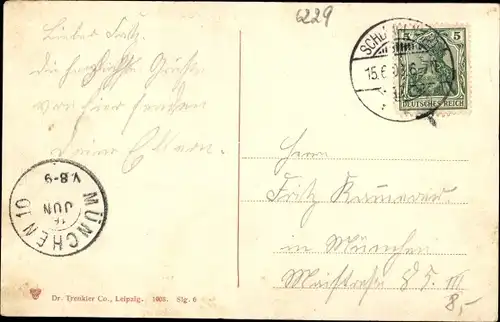 6229
Lieber Fritz.
die herzlichsten Grüße
von hier senden
deine Eltern.
5 5
DEUTSCHES REICH
15.6.
MÜNCHEN 10
16
JUN
V.8-9
Herrn
Fritz
in München
III
8,-
Dr. Trenkler Co., Leipzig. 1908. Slg. 6